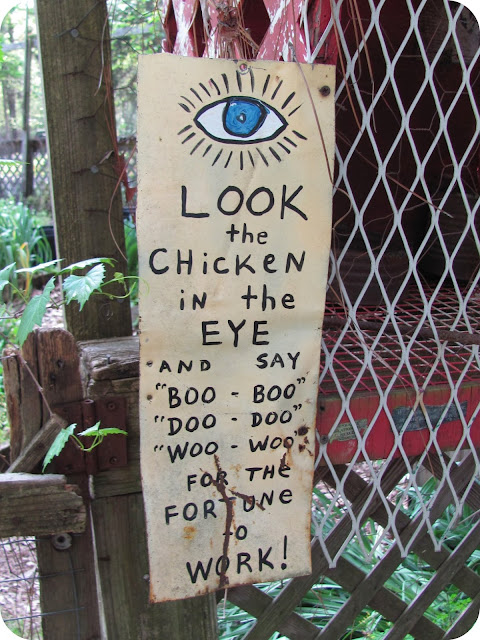 LOOK
the
CHicKEN
in the
EYE
AND SAY
"BOO - BOO"
"DOO - DOO"
"WOO - WOO"
FOR THE
FORTUNe
to
WORK!